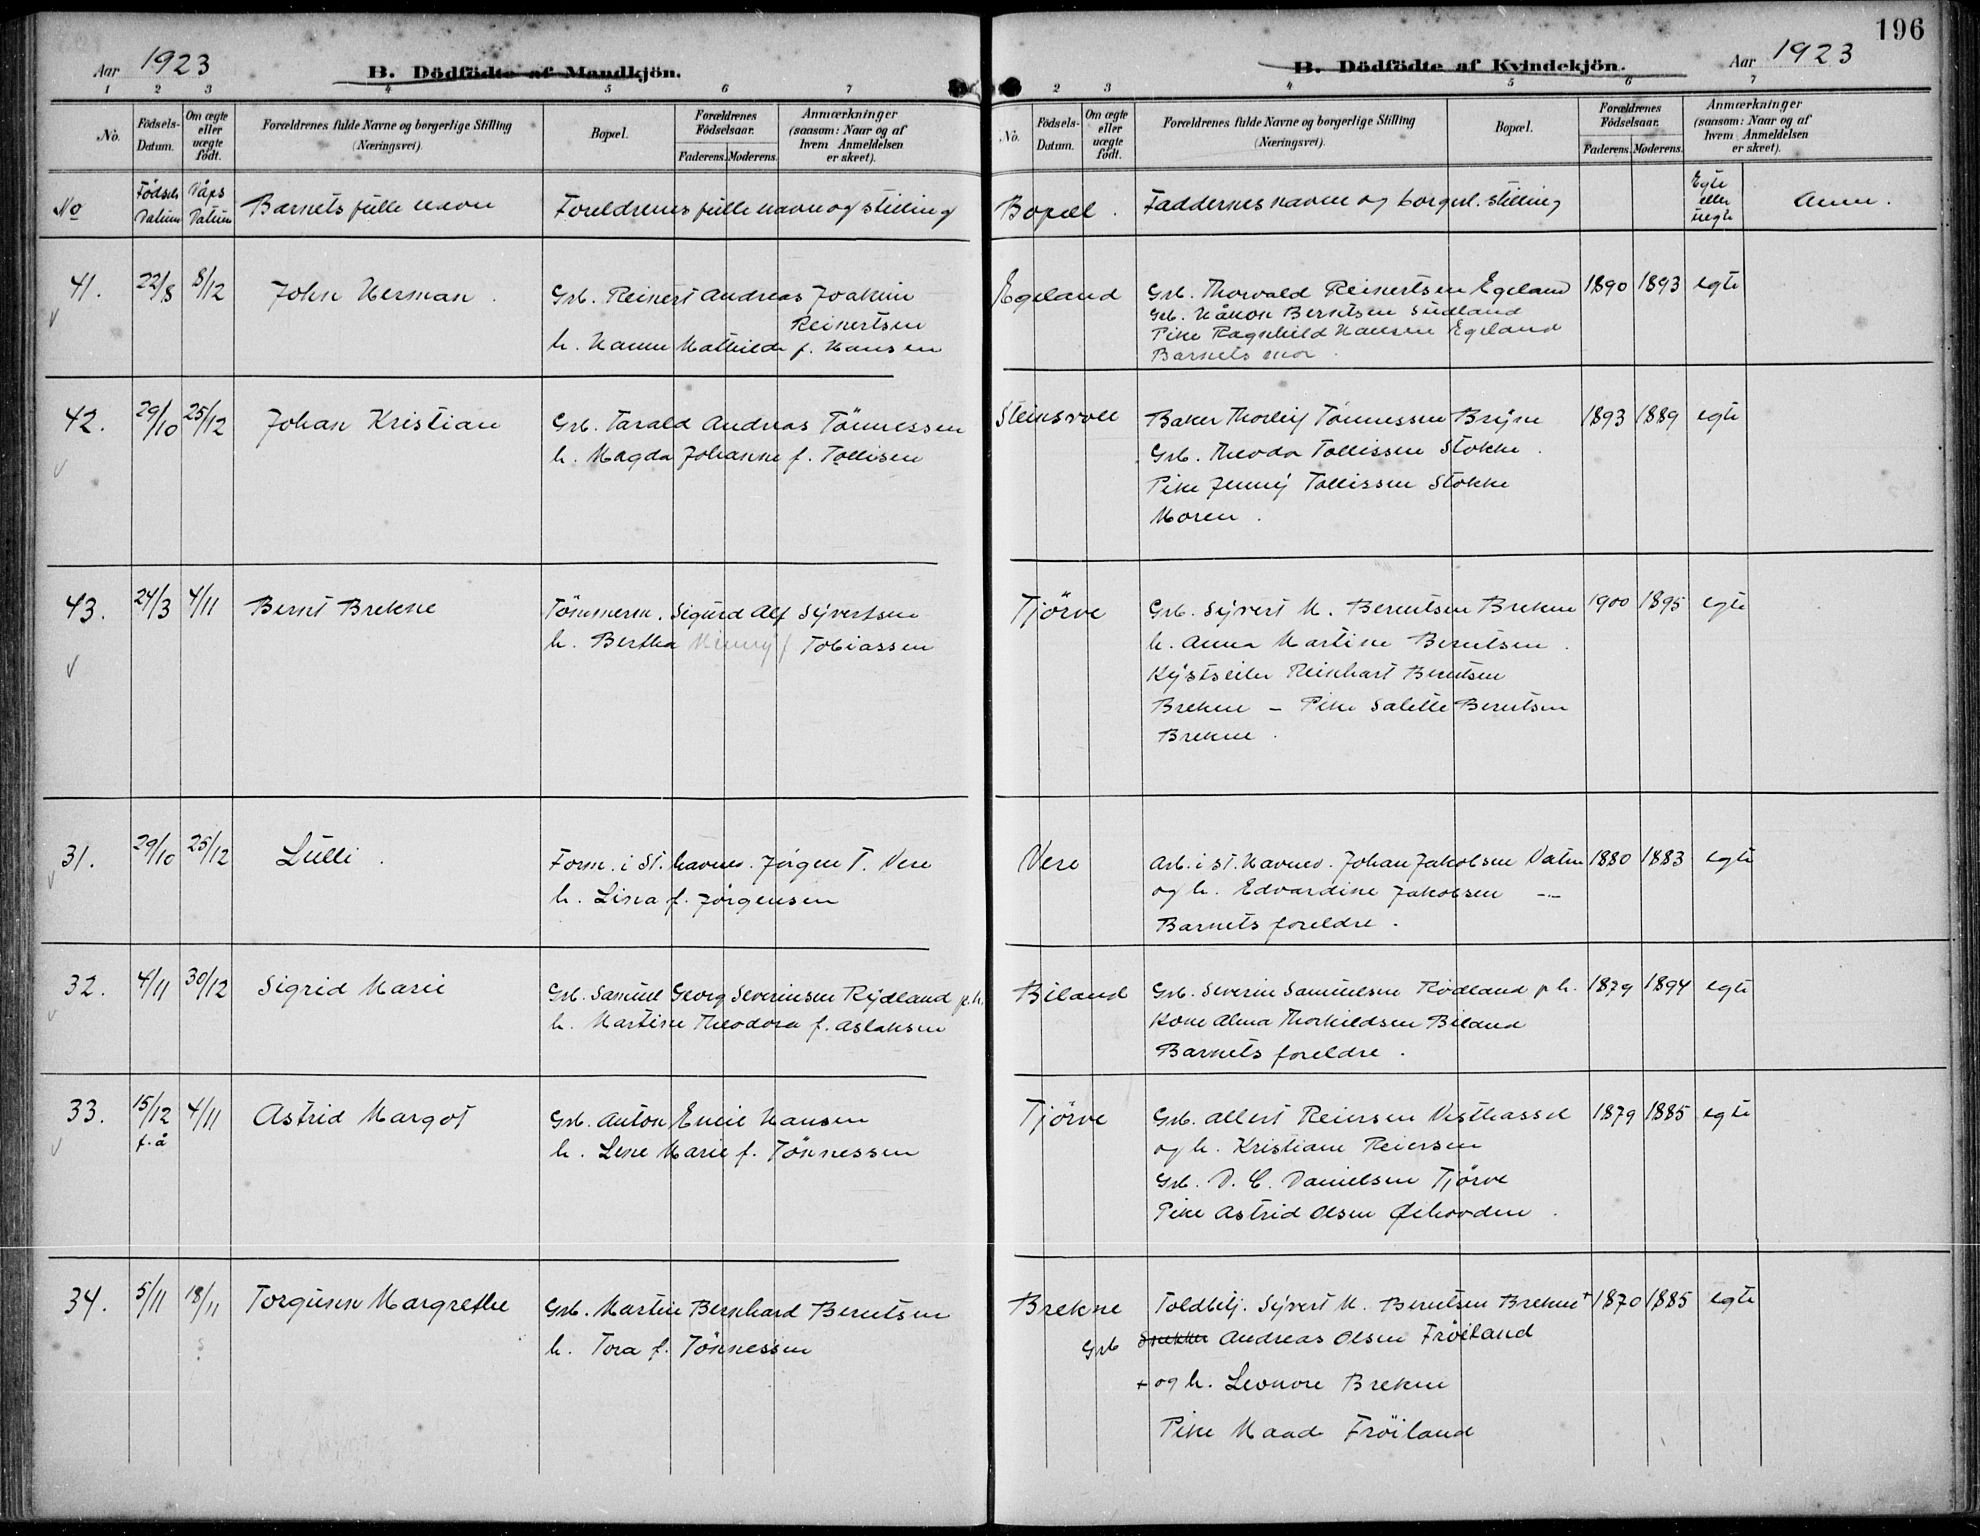 196
Aar 1923
B. Dödfödte af Mandkjön.
1 2 3 4 5 6 7
No.
Födsels-Datum.
Om ægte eller uægte födt.
Forældrenes fulde Navne og borgerlige Stilling (Næringsvei).
Bopæl.
Forældrenes Födselsaar.
Faderens. Moderens.
Anmærkninger (saasom: Naar og af hvem Anmeldelsen er skeet).
B. Dödfödte af Kvindekjön.
Aar 1923
2 3 4 5 6 7
No.
Födsels-Datum.
Om ægte eller uægte födt.
Forældrenes fulde Navne og borgerlige Stilling (Næringsvei).
Bopæl.
Forældrenes Födselsaar.
Faderens. Moderens.
Anmærkninger (saasom: Naar og af hvem Anmeldelsen er skeet).
No Fødsels Datum Dåps Datum Barnets fulle navn Foreldrenes fulle navne og stilling Bopæl. Faddernes navne og borgerl. stilling Egte eller uegte Anm.
41. 22/8 8/12 John Herman. Grb. Reinert Andreas Joakim Egeland Grb. Thorvald Reinertsen Egeland 1890 1893 egte
Reinertsen Grb. Håkon Berntsen Sudland
h. Hanne Mathilde f. Hansen Pike Ragnhild Hansen Egeland
Barnets mor.
42. 29/10 25/12 Johan Kristian Grb. Tarald Andreas Tönnessen Steinsvoll Baker Thorleif Tönnessen Bryne 1893 1889 egte
h. Magda Johanne f. Tollisen Grb. Theodor Tollissen Stokke.
Pike Jenny Tollissen Stokke
Moren.
43. 24/3 4/11 Bernt Brekne Tömmerm. Sigurd Alf Syvertsen Tjörve Grb. Syvert M. Berntsen Brekne 1900 1895 egte
h. Bertha Minny f Tobiassen h. Anna Martine Berntsen.
Kystseiler Reinhart Berntsen
Brekne – Pike Salette Berntsen
Brekne.
31. 29/10 25/12 Lulli. Form. i St. havnev. Jörgen T. Vere Vere Arb. i St. Havnev. Johan Jakobsen Vatne 1880 1883 egte
h. Lina f. Jörgensen og h. Edvardine Jakobsen -"-
Barnets foreldre.
32. 4/11 30/12 Sigrid Marie Grb. Samuel Georg Severinsen Rydland p.h. Biland Grb. Severin Samuelsen Rødland p h. 1879 1894 egte
h. Martine Theodora f. Aslaksen Kone Alma Thorkildsen Biland
Barnets foreldre.
33. 15/12 f.å 4/11 Astrid Margot Grb. Anton Emil Hansen Tjörve Grb. Albert Reiersen Vesthassel 1879 1885 egte
h. Lene Marie f. Tönnessen og h. Kristiane Reiersen
Grb. D. C. Danielsen Tjörve
Pike Astrid Olsen.
34. 5/11 18/11 Torgunn Margrethe Grb. Martin Bernhard Berntsen Brekne Toldbetj. Syvert M. Berntsen Brekne + 1870 1885 egte
h. Tora f. Tönnessen Grb Andreas Olsen Fröiland
+ og h. Leonore Brekne
Pike Maad Fröiland